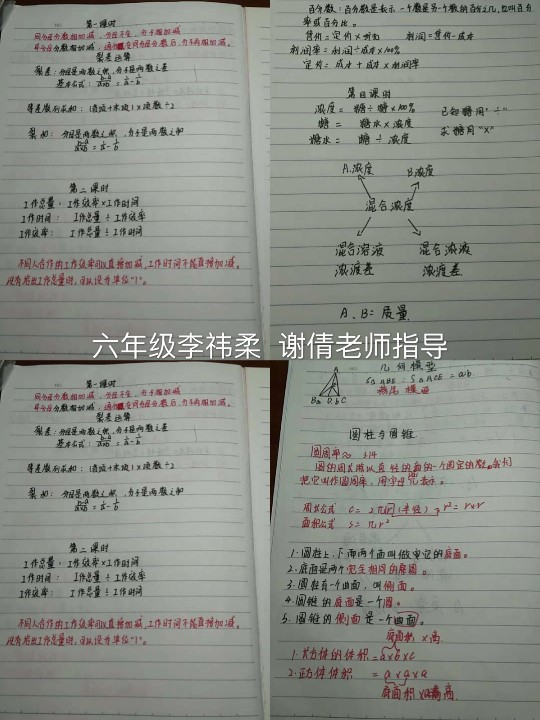 第一课时
同分母分数相加减，分母不变，分子相加减
异分母分数相加减，通分变同分母分数后，分子再相加减。
裂差运算
裂差：分母是两数之积，分子是两数之差
基本公式：b-a/a×b = 1/a - 1/b
等差数列求和：（首项+末项）×项数÷2
裂和：分母是两数之积，分子是两数之和
第二课时
工作总量：工作效率×工作时间
工作时间：工作总量÷工作效率
工作效率：工作总量÷工作时间
不同人合作的工作效率可以直接加减，工作时间不能直接加减。
没有给出工作总量时，可以设为单位"1"。
百分数：百分数是表示一个数是另一个数的百分之几，也叫百分
率或百分比。
售价=定价×折扣 利润=售价-成本
利润率=利润÷成本×100%
定价=成本+成本×利润率
第四课时
浓度=糖÷糖水×100%
糖=糖水×浓度 已知糖用"÷"
糖水=糖÷浓度 求糖用"×"
A.浓度 B浓度
混合浓度
混合溶液 混合浓液
浓渡差 浓渡差
A、B=质量
六年级李祎柔 谢倩老师指导
第一课时
同分母分数相加减，分母不变，分子相加减
异分母分数相加减，通分变同分母分数后，分子再相加减。
裂差运算
裂差：分母是两数之积，分子是两数之差
基本公式：b-a/a×b = 1/a - 1/b
等差数列求和：（首项+末项）×项数÷2
裂和：分母是两数之积，分子是两数之和
第二课时
工作总量：工作效率×工作时间
工作时间：工作总量÷工作效率
工作效率：工作总量÷工作时间
不同人合作的工作效率可以直接加减，工作时间不能直接加减。
没有给出工作总量时，可以设为单位"1"。
几何模型
A
S△ABE：S△ACE=a:b
B a D b C
模型
圆柱与圆锥
圆周率≈3.14
把它叫作圆周率，用字母π表示。
周长公式 C=2πr（半径）→r²=r×r
面积公式 S=πr²
1.圆柱上、下面两个面叫做它的底面。
2.底面是两个完全相同的圆。
3.圆柱有一个曲面，叫侧面。
4.圆锥的底面是一个圆。
5.圆锥的侧面是一个曲面。
底面积×高
1.长方体的体积=a×b×c
2.正方体体积=a×a×a
底面积×高